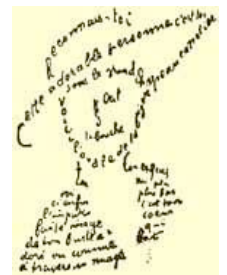 Reconnais-toi
Cette adorable personne c'est toi
sous le grand chapeau canotier
Œil
Nez
la bouche
Voici l'ovale de ta figure
ton cou exquis
Voi
ci enfin
l'impar
faite image
de ton buste a
doré vu comme
à travers un nuage
un peu
plus bas
c'est ton
cœur
qui
bat